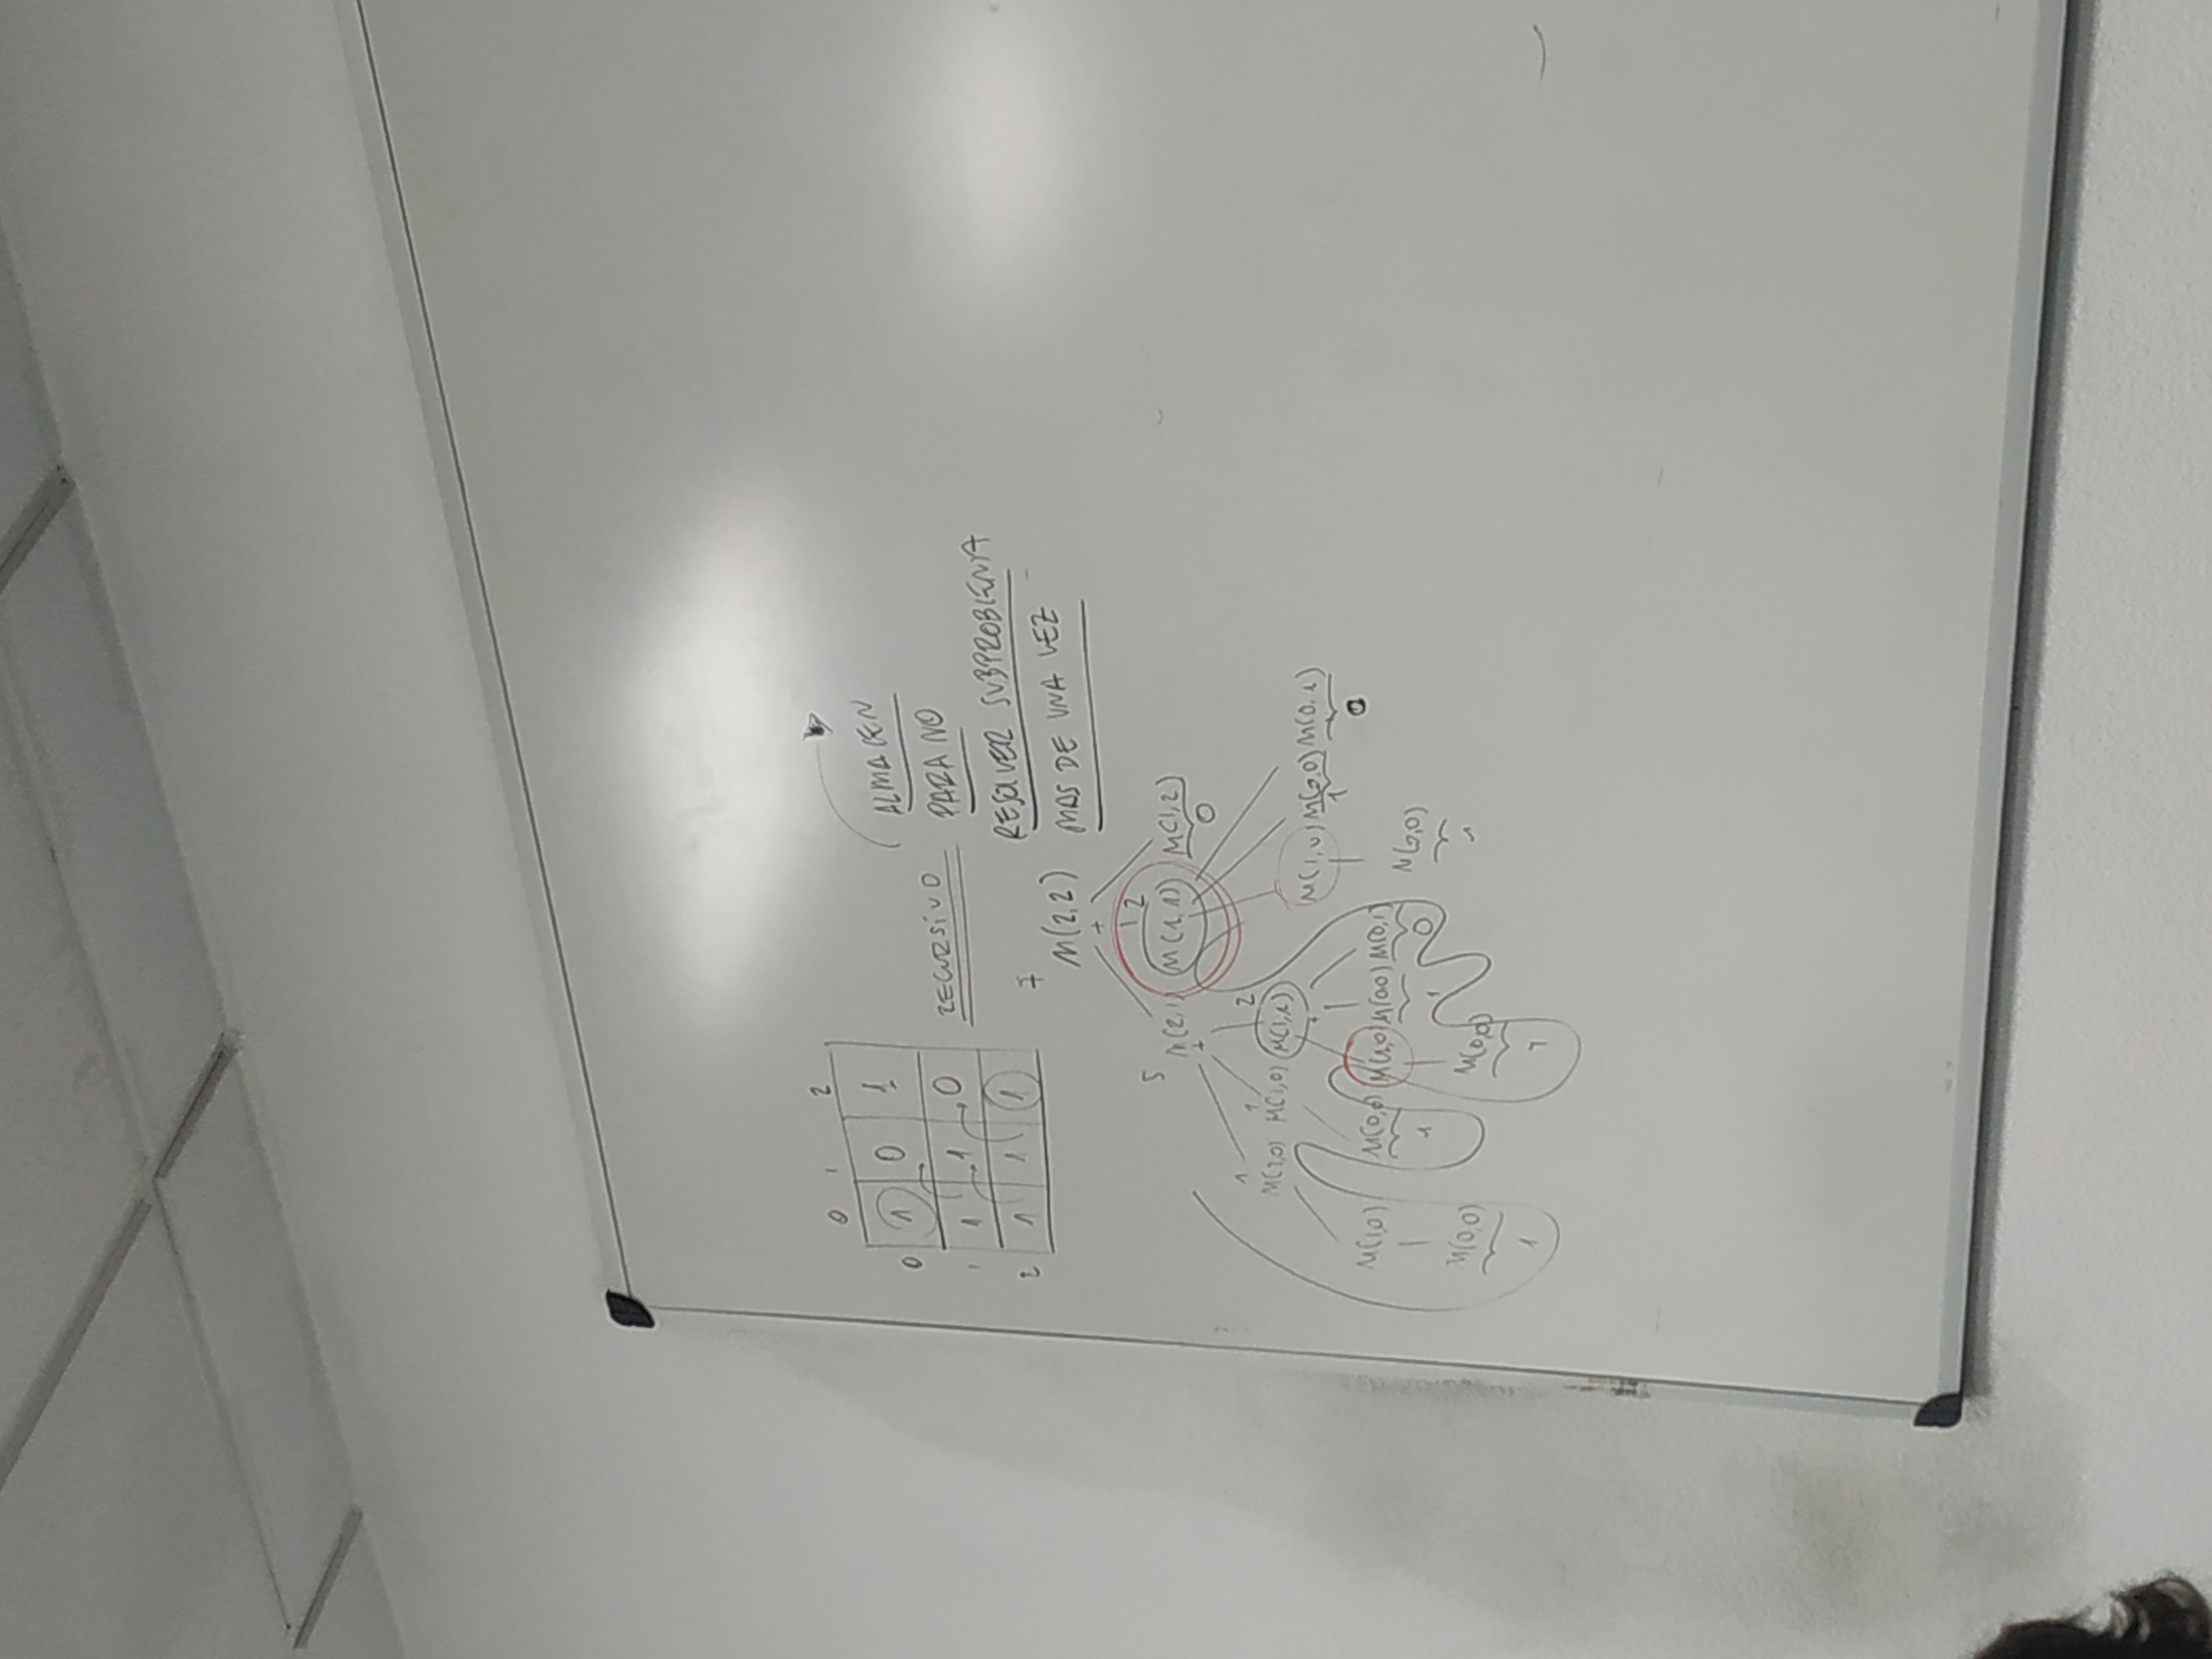 0 1 2
0 1 0 1
1 1 1 0
2 1 1 1
RECURSIVO
ALMACEN
PARA NO
RESOLVER SUBPROBLEMA
MAS DE UNA VEZ
7
M(2,2)
+
5 2
M(2,1) M(1,1) M(1,2)
+ 0
1 1 2
M(2,0) M(1,0) M(1,1)
+
M(1,0) M(0,0) M(0,1)
1 0
M(1,0) M(0,0) M(1,0) M(0,0) M(0,1)
1 1 0
M(0,0) M(0,0) M(0,0)
1 1 1